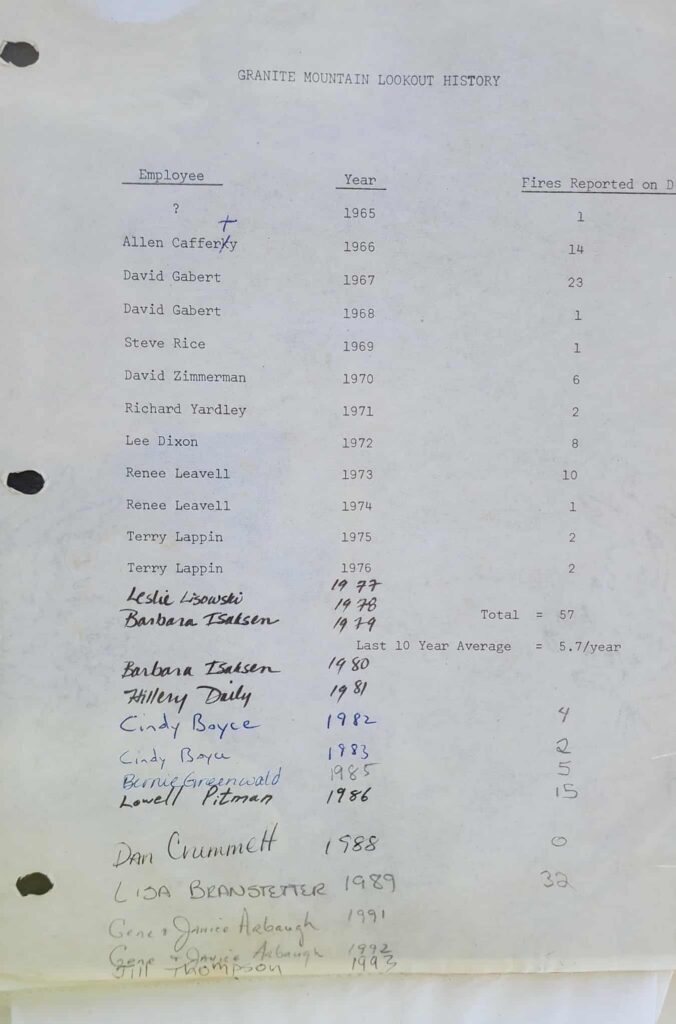 GRANITE MOUNTAIN LOOKOUT HISTORY
Employee Year Fires Reported on D
? 1965 1
Allen Cafferty 1966 14
David Gabert 1967 23
David Gabert 1968 1
Steve Rice 1969 1
David Zimmerman 1970 6
Richard Yardley 1971 2
Lee Dixon 1972 8
Renee Leavell 1973 10
Renee Leavell 1974 1
Terry Lappin 1975 2
Terry Lappin 1976 2
1977
Leslie Lisowski 1978
Barbara Isaksen 1979 Total = 57
Last 10 Year Average = 5.7/year
Barbara Isaksen 1980
Hillery Daily 1981
Cindy Boyce 1982 4
Cindy Boyce 1983 2
Bernie Greenwald 1985 5
Lowell Pitman 1986 15
Dan Crummett 1988 0
LISA BRANSTETTER 1989 32
Gene & Janice Arbaugh 1991
Gene & Janice Arbaugh 1992
Jill Thompson 1993